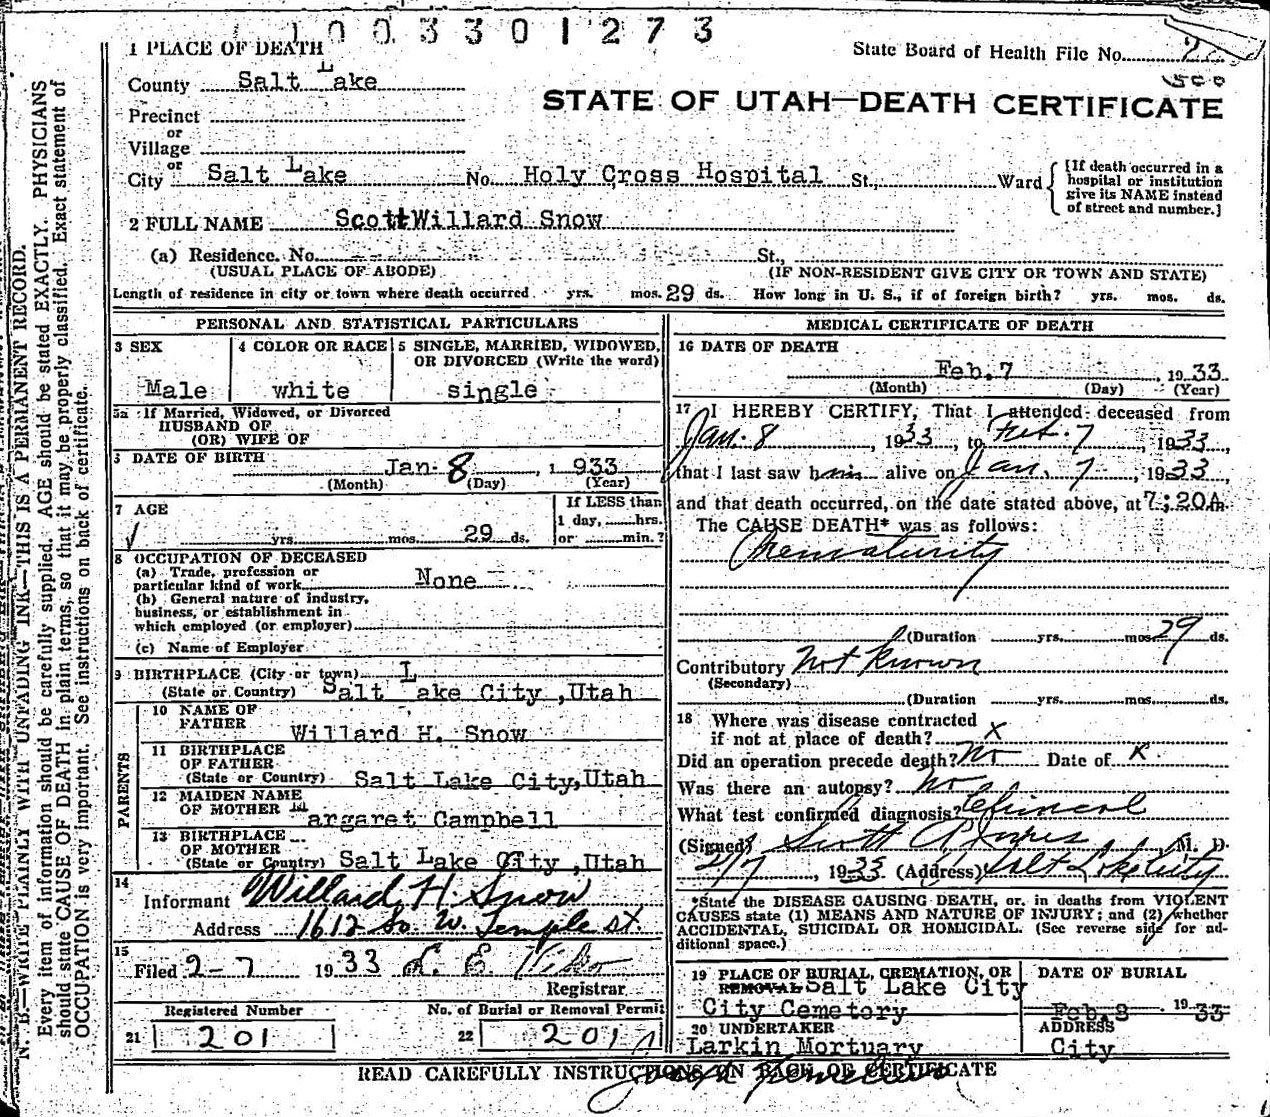 1003301273
1 PLACE OF DEATH
State Board of Health File No.
County Salt Lake
500
STATE OF UTAH—DEATH CERTIFICATE
Precinct
or
Village
or
City Salt Lake No. Holy Cross Hospital St., Ward
[If death occurred in a
hospital or institution
give its NAME instead
of street and number.]
2 FULL NAME Scott Willard Snow
(a) Residence. No. St.,
(USUAL PLACE OF ABODE) (IF NON-RESIDENT GIVE CITY OR TOWN AND STATE)
Length of residence in city or town where death occurred yrs. mos. 29 ds. How long in U. S., if of foreign birth? yrs. mos. ds.
PERSONAL AND STATISTICAL PARTICULARS
3 SEX
Male
4 COLOR OR RACE
white
5 SINGLE, MARRIED, WIDOWED,
OR DIVORCED (Write the word)
single
5a If Married, Widowed, or Divorced
HUSBAND OF
(OR) WIFE OF
DATE OF BIRTH
Jan. 8, 1933
(Month) (Day) (Year)
7 AGE
yrs. mos. 29 ds.
If LESS than
1 day, hrs.
or min.?
8 OCCUPATION OF DECEASED
(a) Trade, profession or
particular kind of work None
(b) General nature of industry,
business, or establishment in
which employed (or employer)
(c) Name of Employer
9 BIRTHPLACE (City or town)
(State or Country) Salt Lake City, Utah
PARENTS
10 NAME OF
FATHER Willard H. Snow
11 BIRTHPLACE
OF FATHER
(State or Country) Salt Lake City, Utah
12 MAIDEN NAME
OF MOTHER Margaret Campbell
13 BIRTHPLACE
OF MOTHER
(State or Country) Salt Lake City, Utah
14
Informant Willard H. Snow
Address 1612 So. W. Temple St.
15
Filed 2-7 1933
Registrar
Registered Number
21 201
No. of Burial or Removal Permit
22 201
MEDICAL CERTIFICATE OF DEATH
16 DATE OF DEATH
Feb. 7, 1933
(Month) (Day) (Year)
17 I HEREBY CERTIFY, That I attended deceased from
Jan. 8 1933, to Feb. 7, 1933,
that I last saw him alive on Jan. 7, 1933,
and that death occurred, on the date stated above, at 7:20A m.
The CAUSE DEATH* was as follows:
Prematurity
(Duration yrs. mos. 29 ds.
Contributory Not known
(Secondary)
(Duration yrs. mos. ds.
18 Where was disease contracted
if not at place of death? x
Did an operation precede death? No Date of x
Was there an autopsy? No
What test confirmed diagnosis? Clinical
(Signed) Scott M. D.
2/7, 1933. (Address) Salt Lake City
*State the DISEASE CAUSING DEATH, or, in deaths from VIOLENT
CAUSES state (1) MEANS AND NATURE OF INJURY; and (2) whether
ACCIDENTAL, SUICIDAL OR HOMICIDAL. (See reverse side for ad-
ditional space.)
19 PLACE OF BURIAL, CREMATION, OR
REMOVAL Salt Lake City
City Cemetery
DATE OF BURIAL
Feb. 8 1933
20 UNDERTAKER
Larkin Mortuary
ADDRESS
City
READ CAREFULLY INSTRUCTIONS ON BACK OF CERTIFICATE
N. B.—WRITE PLAINLY WITH UNFADING INK—THIS IS A PERMANENT RECORD.
Every item of information should be carefully supplied. AGE should be stated EXACTLY. PHYSICIANS
should state CAUSE OF DEATH in plain terms, so that it may be properly classified. Exact statement of
OCCUPATION is very important. See instructions on back of certificate.